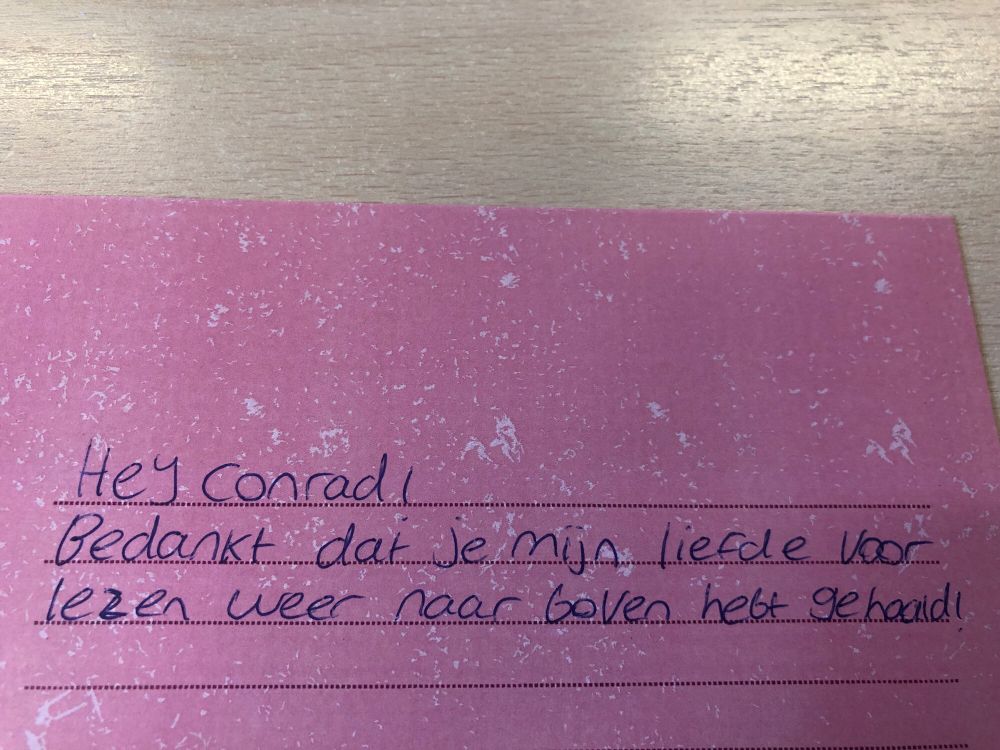 Hey Conrad!
Bedankt dat je mijn liefde voor
lezen weer naar boven hebt gehaald!